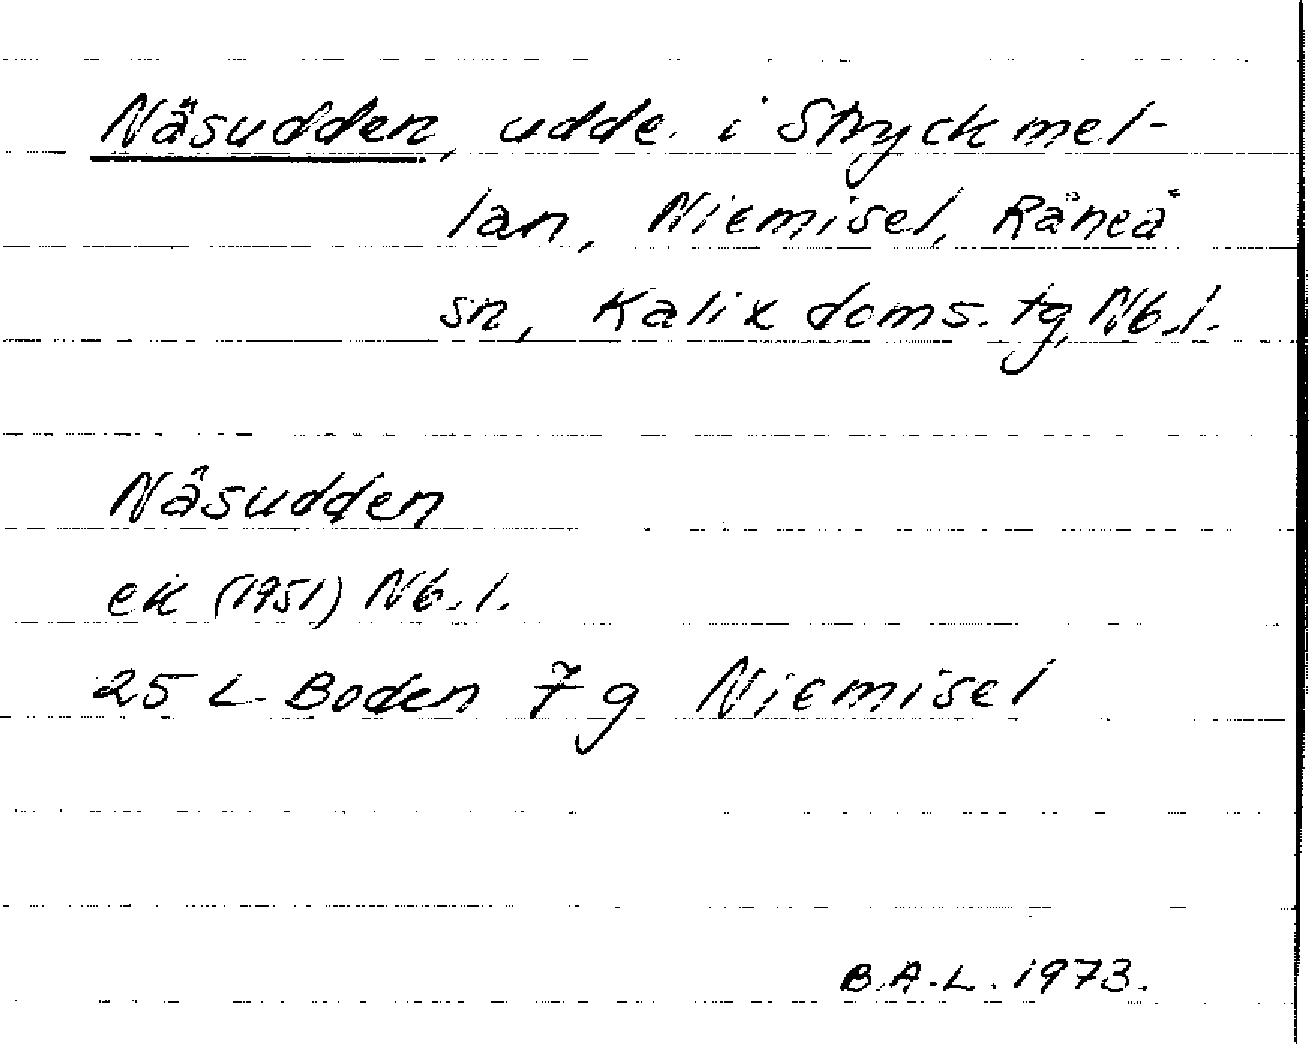 Näsudden, udde i Stryckmel-
lan, Niemisel, Råneå
sn, Kalix doms. tg, Nb.l.
Näsudden
ek (1951) Nb.l.
25 L Boden 7 g Niemisel
B.A.L. 1973.